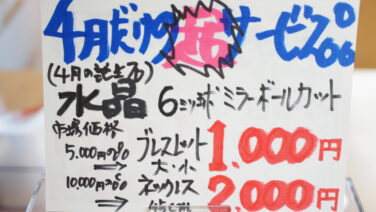 4月だけの超サービス‼
(4月の誕生石)
水晶 6ミリ球 ミラーボールカット
市場価格
5,000円の品 → ブレスレット 大・小 1,000円
10,000円の品 → ネックレス 2,000円